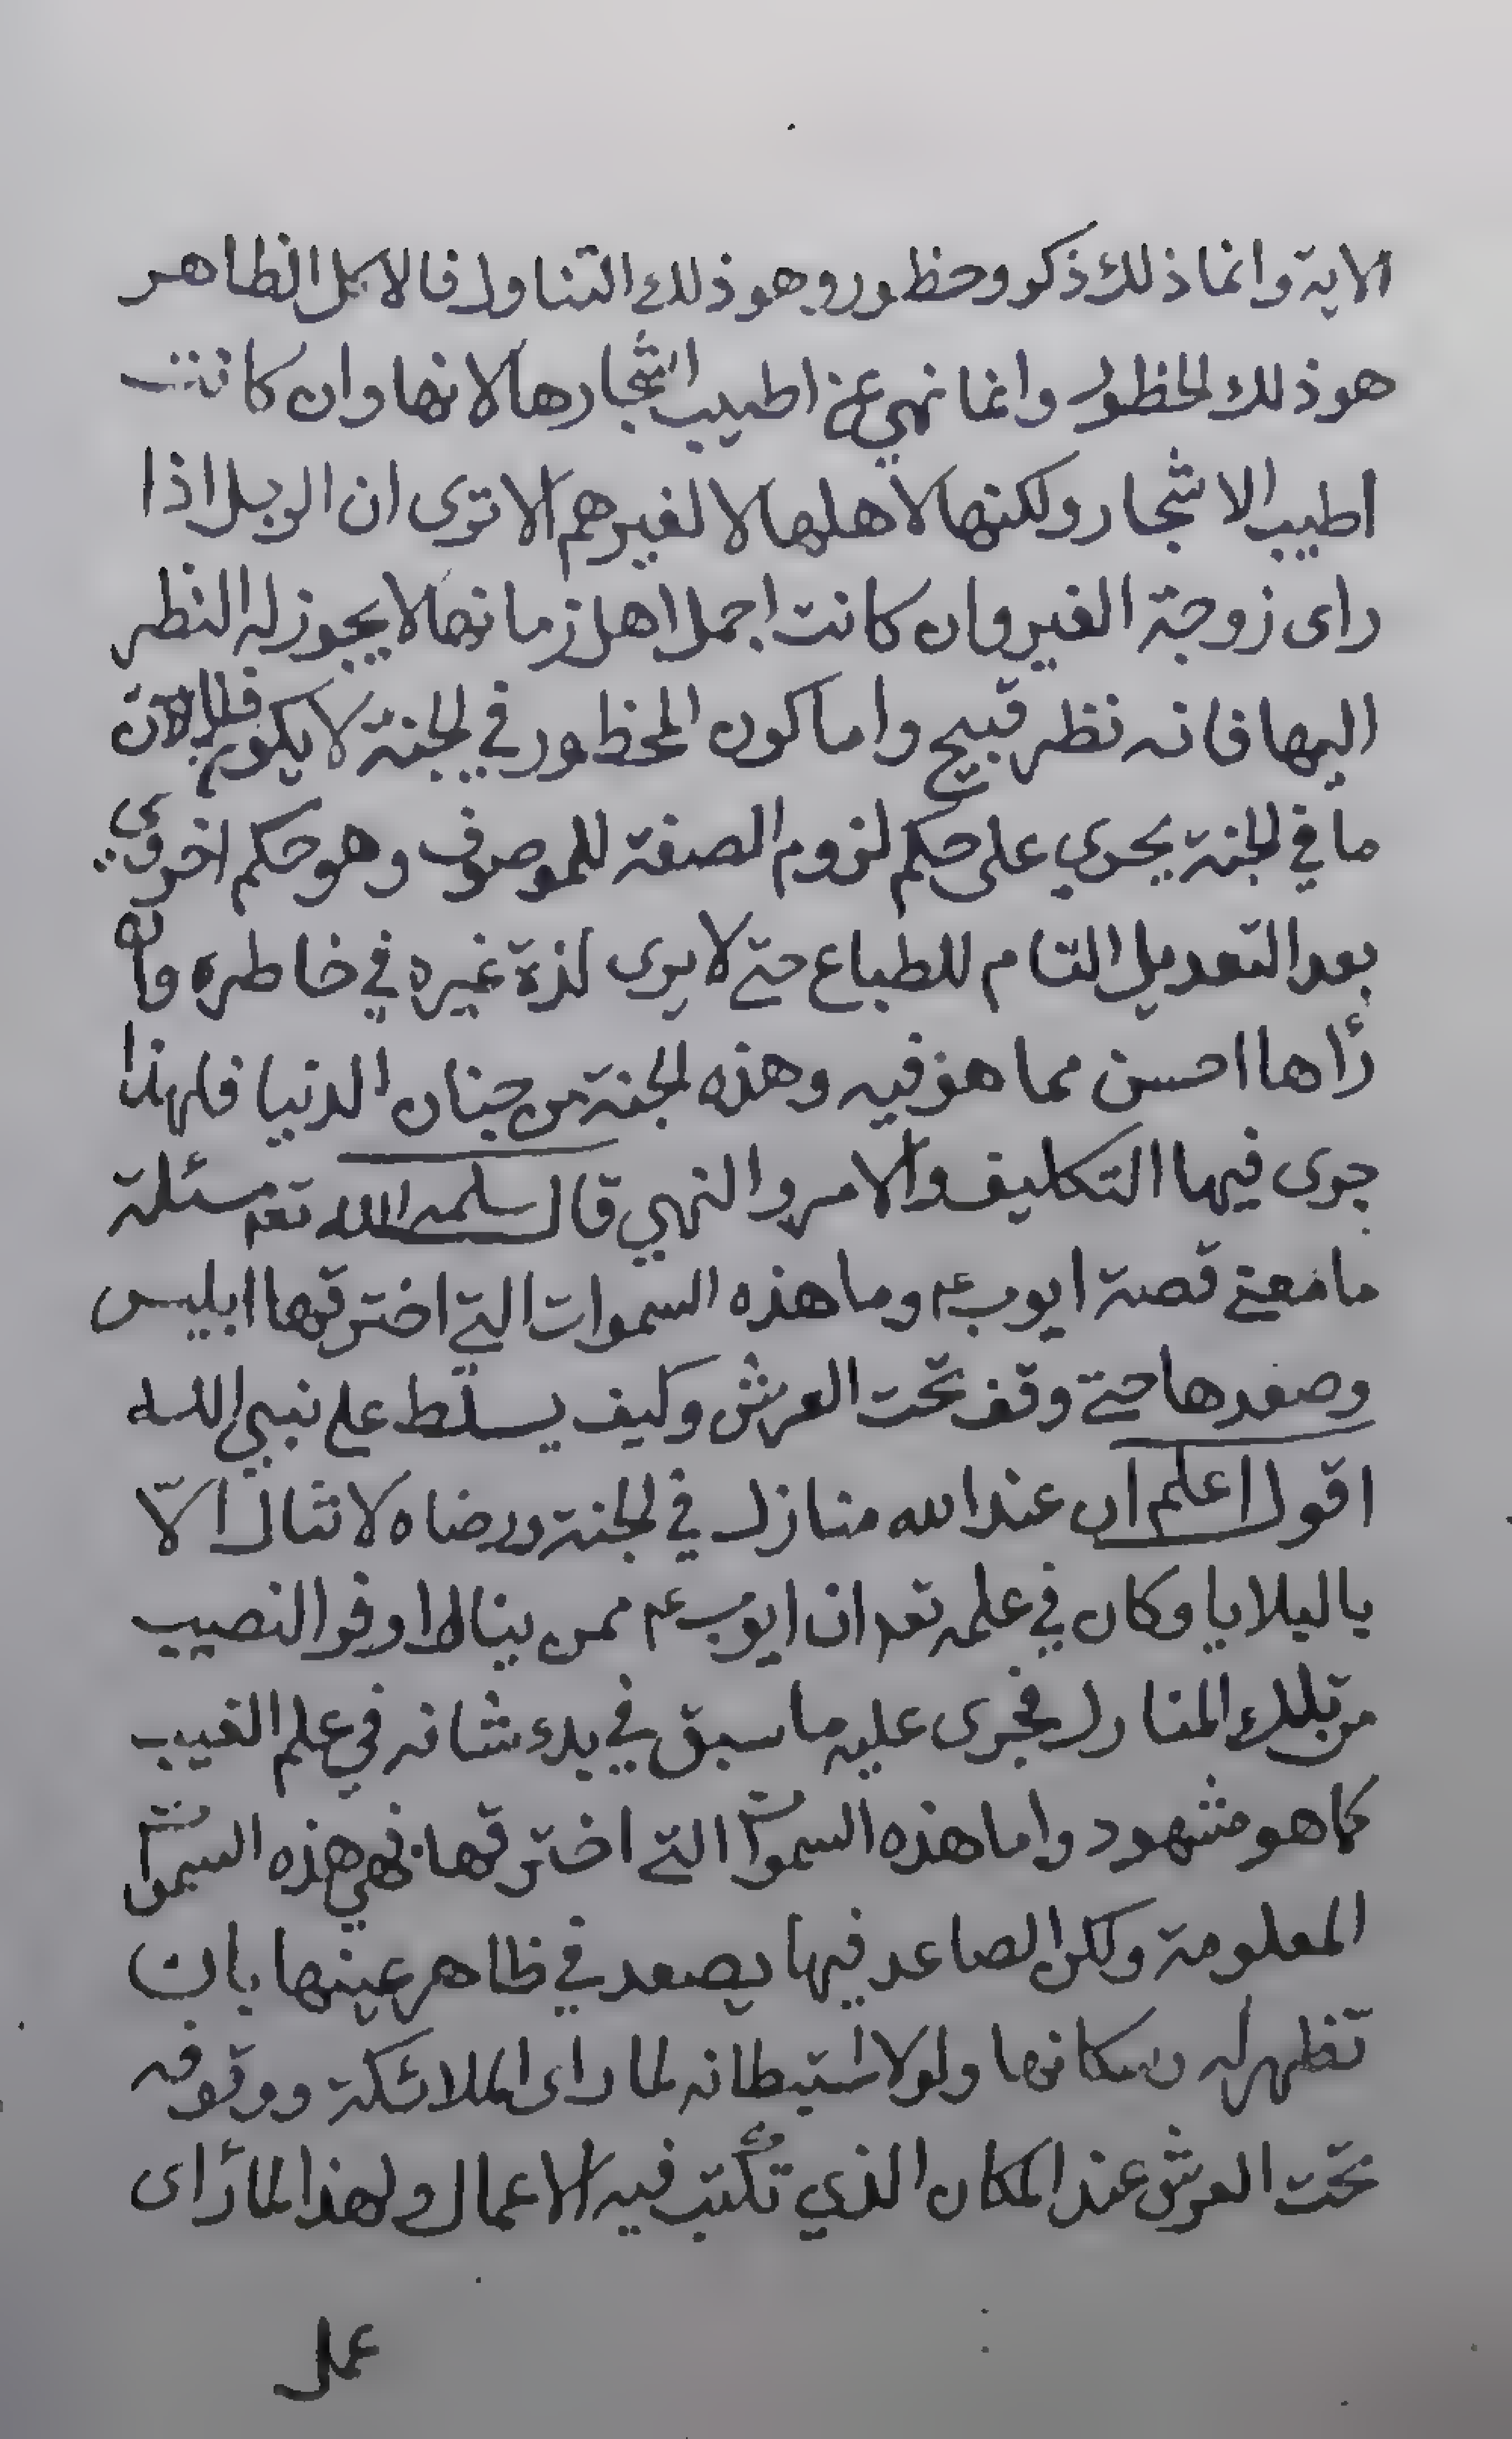 الاية وانما ذلك ذكر وحظور وهو ذلك التناول فالاكل الظاهر
هو ذلك المحظور وانما نهي عن اطيب اشجارها لانها وان كانت
اطيب الاشجار ولكنها لاهلها لا لغيرهم الا ترى ان الرجل اذا
راى زوجة الغير وان كانت اجمل اهل زمانها لا يجوز له النظر
اليها فانه نظر قبيح واما كون المحظور في الجنة لا يكون فلان
ما في الجنة يجري على حكم لزوم الصفة للموصوف وهو حكم اخروي
بعد التعديل التام للطباع حتى لا يرى لذة غيره في خاطره وان
رأها احسن مما هو فيه وهذه الجنة من جنان الدنيا فلهذا
جرى فيها التكليف والامر والنهي قال سلمه الله تع مسئلة
ما معنى قصة ايوب ع وما هذه السموات التي اخترقها ابليس
وصعدها حتى وقف تحت العرش وكيف يسلط على نبي الله
اقول اعلم ان عند الله منازل في الجنة ورضاه لا تنال الّا
بالبلايا وكان في علمه تع ان ايوب ع ممن ينال اوفر النصيب
من تلك المنازل فجرى عليه ما سبق في بدء شانه في علم الغيب
كما هو مشهود واما هذه السموات التي اخترقها فهي هذه السموات
المعلومة ولكن الصاعد فيها يصعد في ظاهر عينها بان
تظهر له سكانها ولولا استبطانه لما راى الملائكة ووقوفه
تحت العرش عند المكان الذي تكتب فيه الاعمال ولهذا لما رأى
عمل